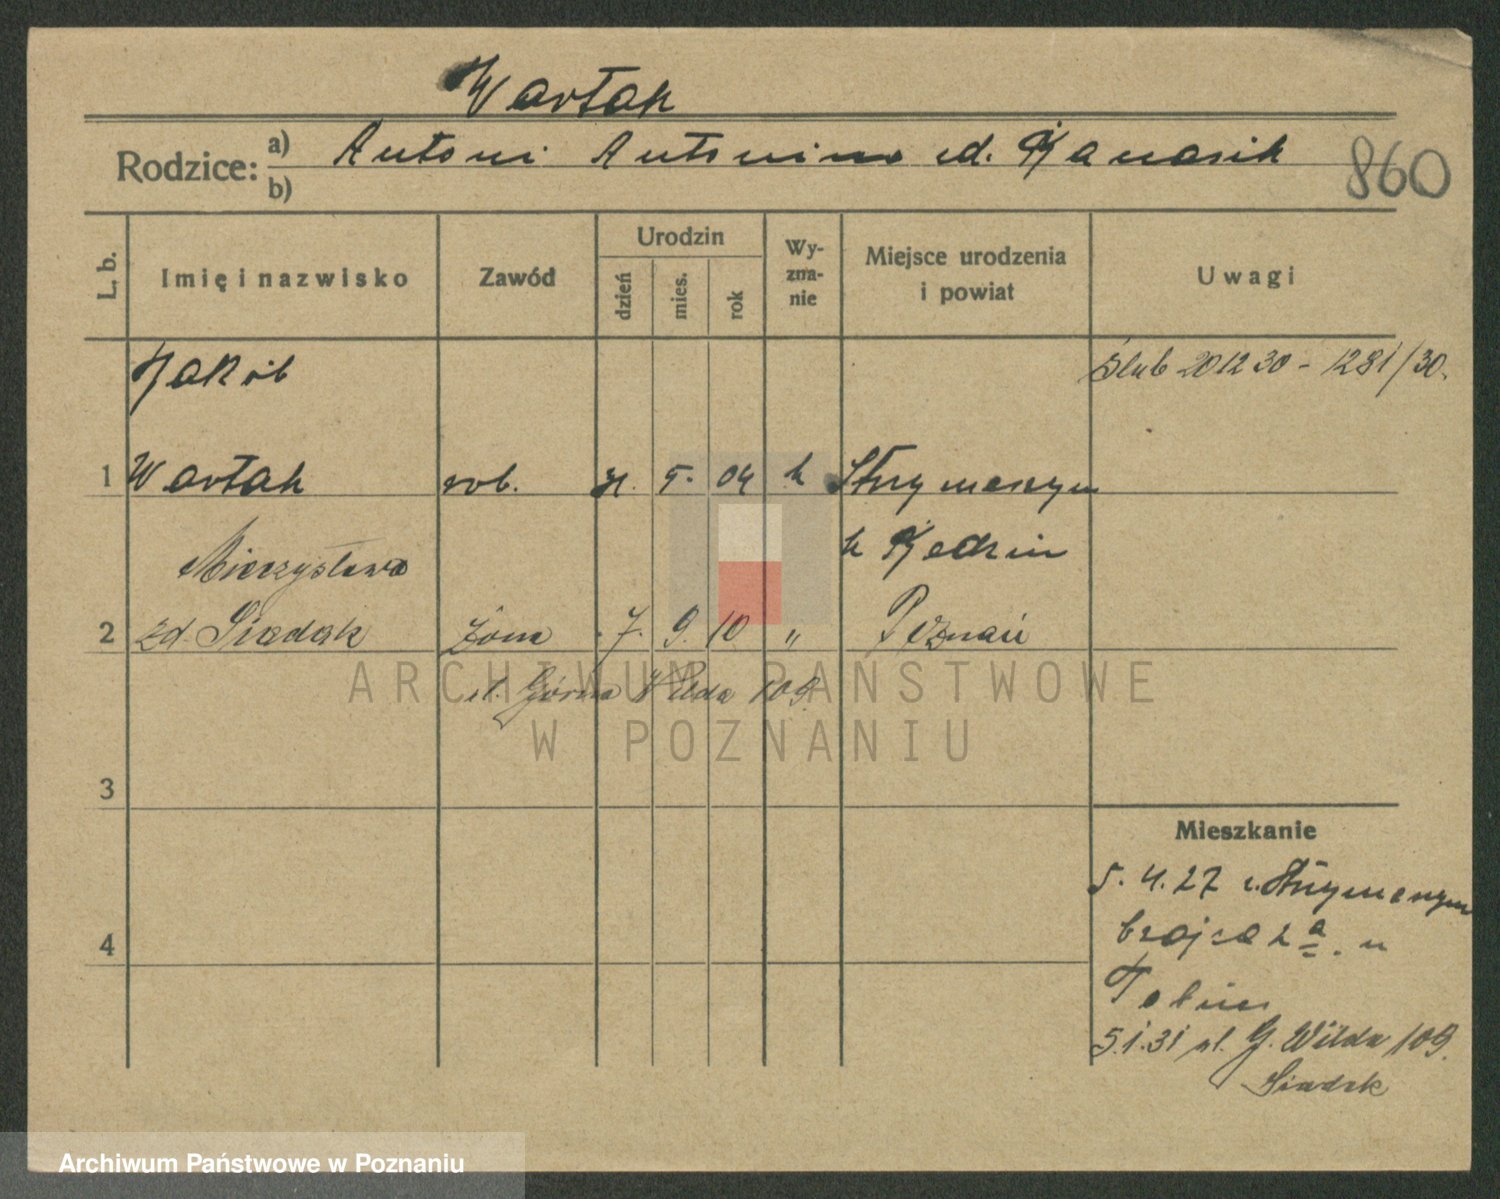 Wartak
Rodzice: a) Antoni Antonina zd. Kanasik
b)
860
L. b.
Imię i nazwisko
Zawód
Urodzin
dzień
mies.
rok
Wy-
zna-
nie
Miejsce urodzenia
i powiat
Uwagi
Jakób
Ślub 20 12 30 - 1281/30.
1 Wartak rob. 5. 04 k
Mieczysława
2 zd. Siadak żona 7. 9. 10 " Poznań
ul. Górna Wilda 109.
3
Mieszkanie
5. 4. 27
4
5.1.31 ul. G. Wilda 109.
Siadak
ARCHIWUM PAŃSTWOWE
W POZNANIU
Archiwum Państwowe w Poznaniu